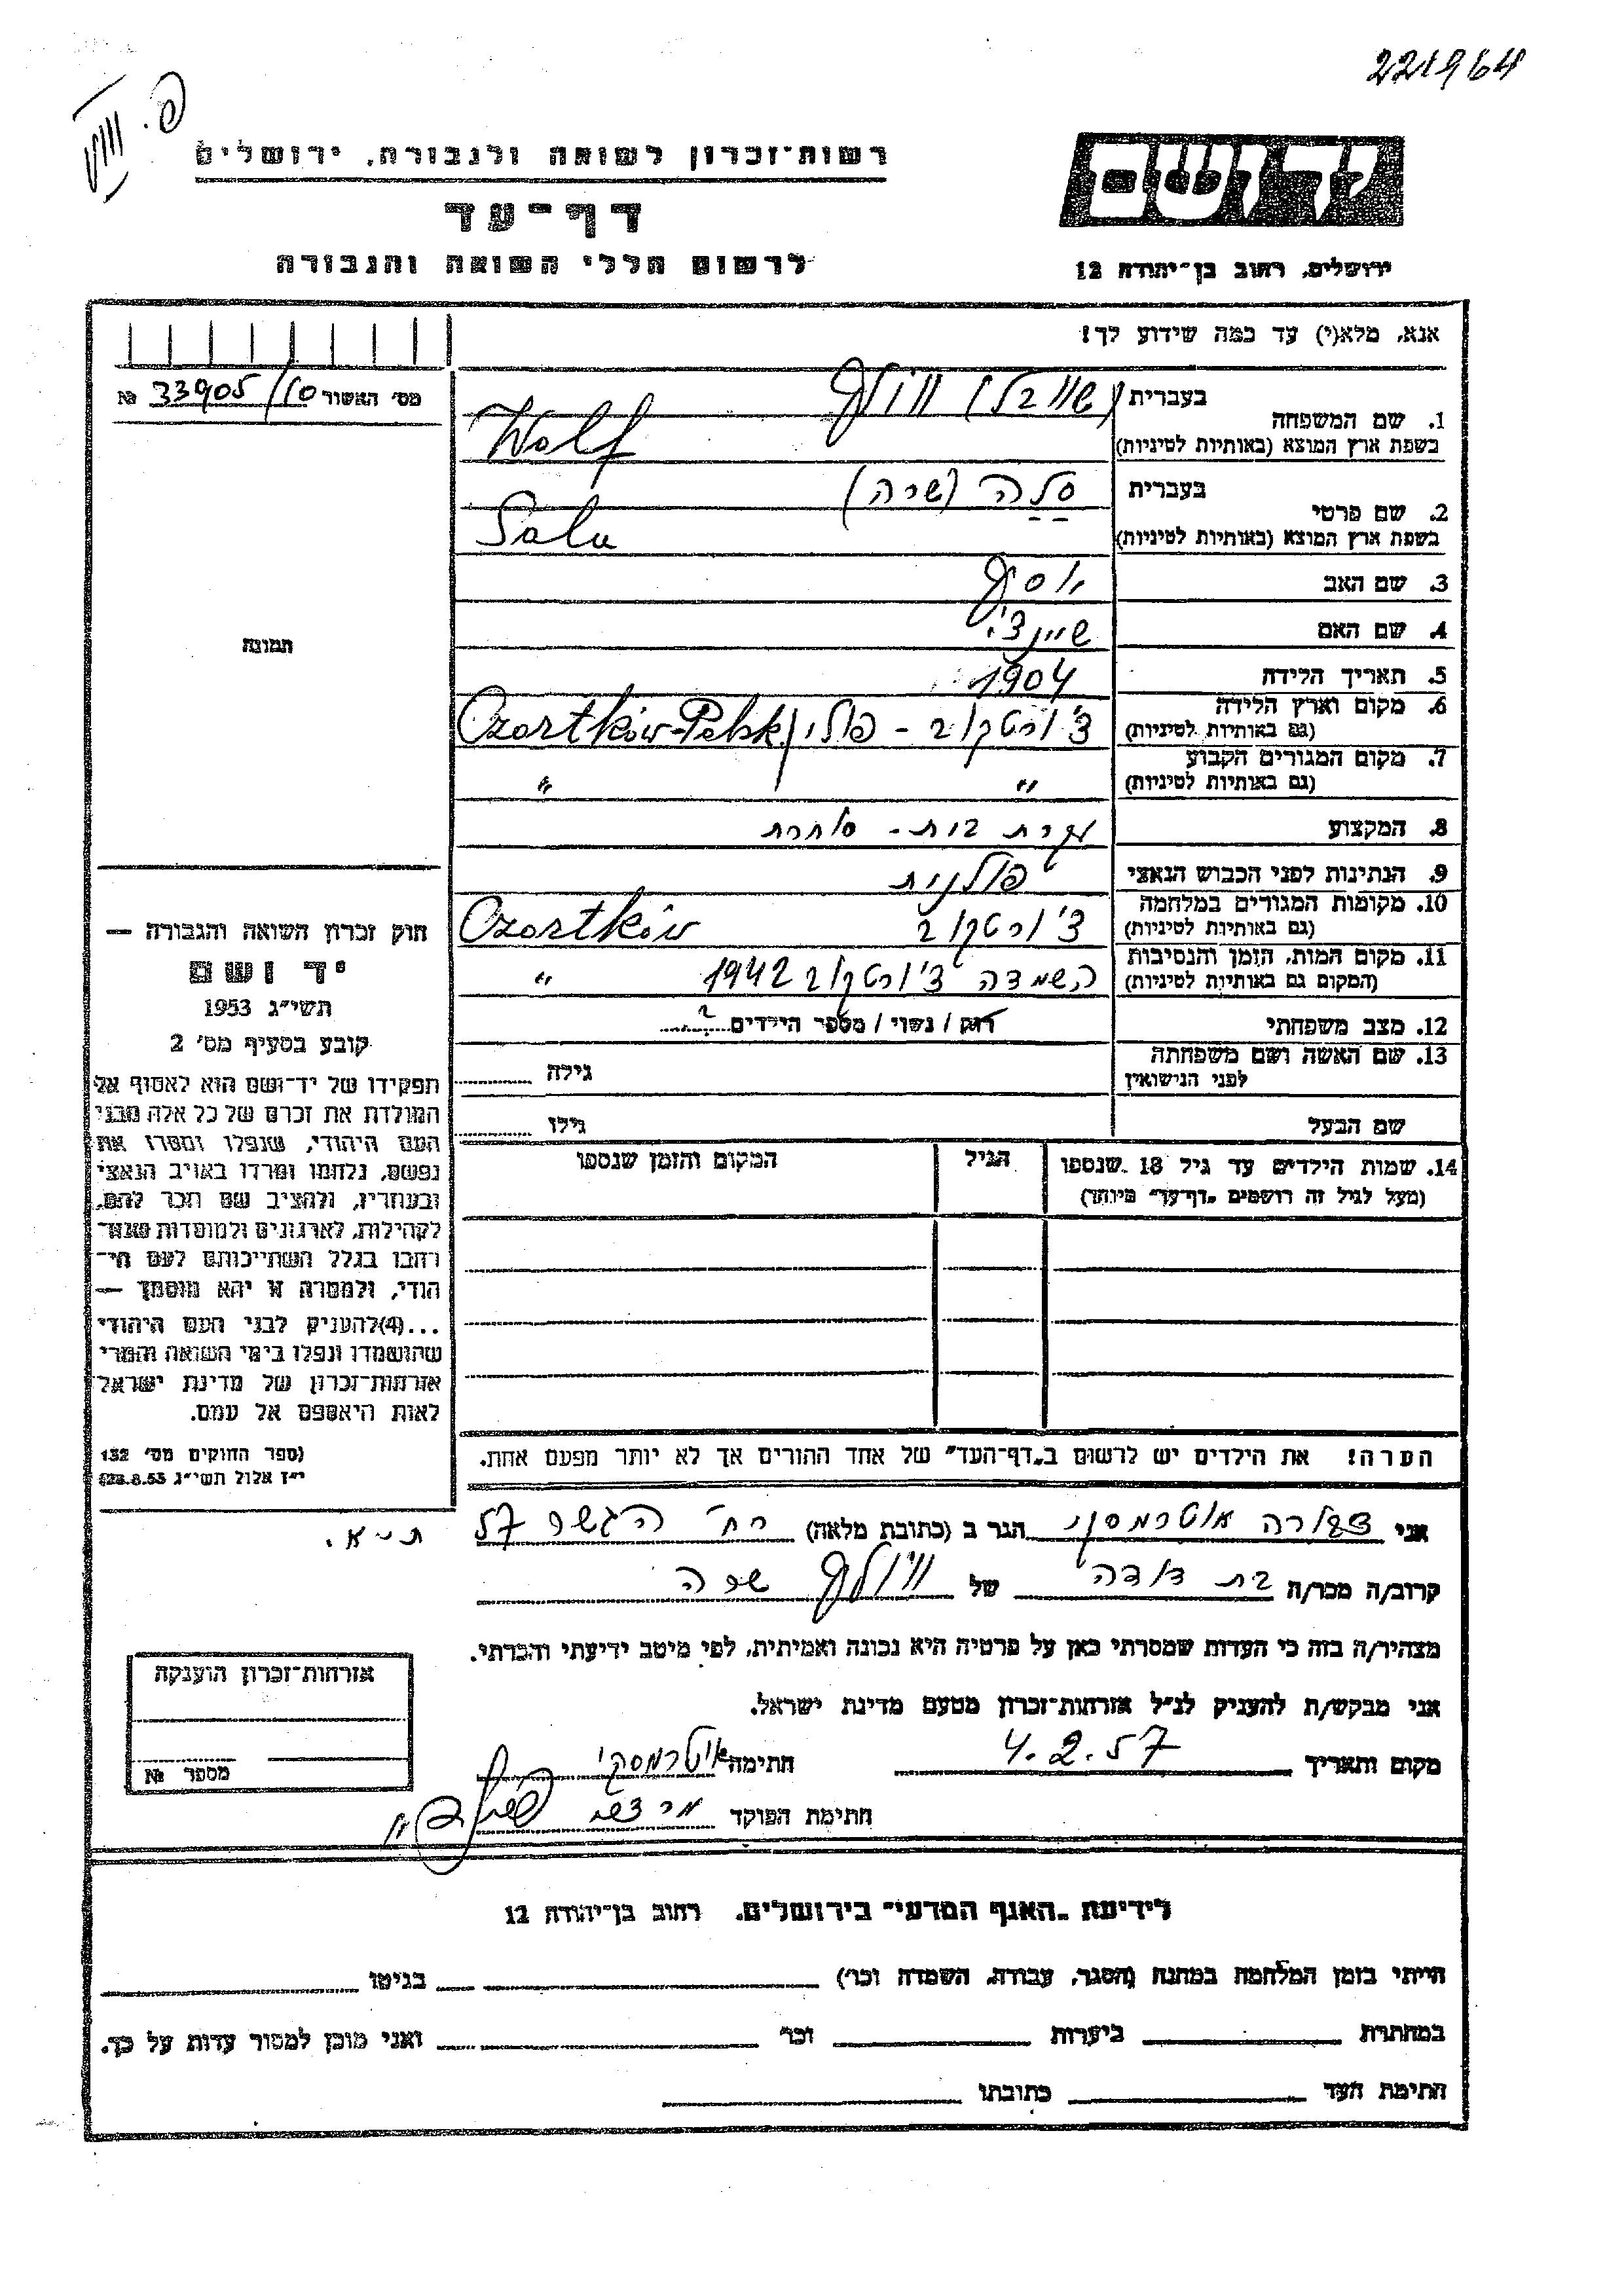 221964
פ.
יד ושם
רשות־זכרון לשואה ולגבורה, ירושלים
דף־עד
לרשום חללי השואה והגבורה
ירושלים, רחוב בן־יהודה 12
אנא, מלא(י) עד כמה שידוע לך!
מס׳ האשור 33905/10 №
בעברית וולף
1. שם המשפחה
בשפת ארץ המוצא (באותיות לטיניות) Wolf
בעברית סלה (שרה)
2. שם פרטי
בשפת ארץ המוצא (באותיות לטיניות) Sala
3. שם האב יוסף
4. שם האם שיינצ׳י
5. תאריך הלידה 1904
6. מקום וארץ הלידה
(גם באותיות לטיניות) צ׳ורטקוב - פולין Czortków-Polsk
7. מקום המגורים הקבוע
(גם באותיות לטיניות) " "
8. המקצוע עקרת בית - סוחרת
9. הנתינות לפני הכבוש הנאצי פולנית
10. מקומות המגורים במלחמה
(גם באותיות לטיניות) צ׳ורטקוב Czortków
11. מקום המות, הזמן והנסיבות
(המקום גם באותיות לטיניות) השמדה צ׳ורטקוב 1942 "
12. מצב משפחתי רוק / נשוי / מספר הילדים 2
13. שם האשה ושם משפחתה
לפני הנישואין גילה
שם הבעל גילו
14. שמות הילדים עד גיל 18 שנספו
(מעל לגיל זה רושמים „דף־עד״ מיוחד)
הגיל
המקום והזמן שנספו
תמונה
חוק זכרון השואה והגבורה —
יד ושם
תשי״ג 1953
קובע בסעיף מס׳ 2
תפקידו של יד־ושם הוא לאסוף אל
המולדת את זכרם של כל אלה מבני
העם היהודי, שנפלו ומסרו את
נפשם, נלחמו ומרדו באויב הנאצי
ובעוזריו, ולהציב שם וזכר להם,
לקהילות, לארגונים ולמוסדות שנח־
רבו בגלל השתייכותם לעם הי־
הודי, ולמטרה זו יהא מוסמך —
...(4)להעניק לבני העם היהודי
שהושמדו ונפלו בימי השואה והמרי
אזרחות־זכרון של מדינת ישראל
לאות היאספם אל עמם.
(ספר החוקים מס׳ 132
י״ז אלול תשי״ג 28.8.53)
הערה! את הילדים יש לרשום ב„דף־העד״ של אחד ההורים אך לא יותר מפעם אחת.
אני אוטרמסקי הגר ב (כתובת מלאה) רח׳ הגשר 57 ת״א.
קרוב/ה מכר/ה בת דודה של וולף שרה
מצהיר/ה בזה כי העדות שמסרתי כאן על פרטיה היא נכונה ואמיתית, לפי מיטב ידיעתי והכרתי.
אני מבקש/ת להעניק לנ״ל אזרחות־זכרון מטעם מדינת ישראל.
מקום ותאריך 4.2.57 חתימה אוטרמסקי
חתימת הפוקד
אזרחות־זכרון הוענקה
מספר №
לידיעת „האגף המדעי״ בירושלים, רחוב בן־יהודה 12
הייתי בזמן המלחמה במחנה (הסגר, עבודה, השמדה וכו׳) בגיטו
במחתרת ביערות וכו׳ ואני מוכן למסור עדות על כך.
חתימת העד כתובתו